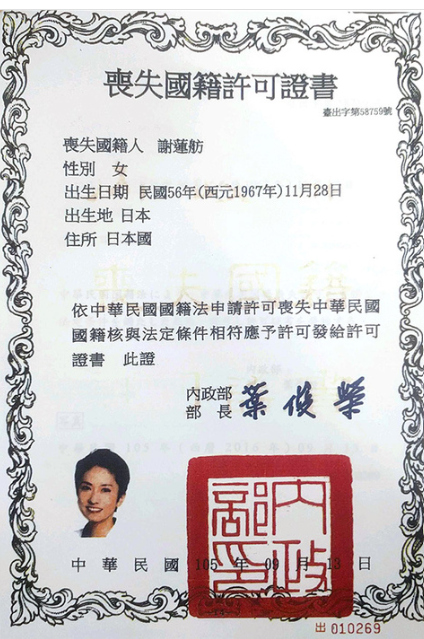 喪失國籍許可證書
臺出字第58759號
喪失國籍人 謝蓮舫
性別 女
出生日期 民國56年(西元1967年)11月28日
出生地 日本
住所 日本國
依中華民國國籍法申請許可喪失中華民國
國籍核與法定條件相符應予許可發給許可
證書 此證
內政部
部長 葉俊榮
內政部印
中華民國 105 年 09 月 13 日
出 010269